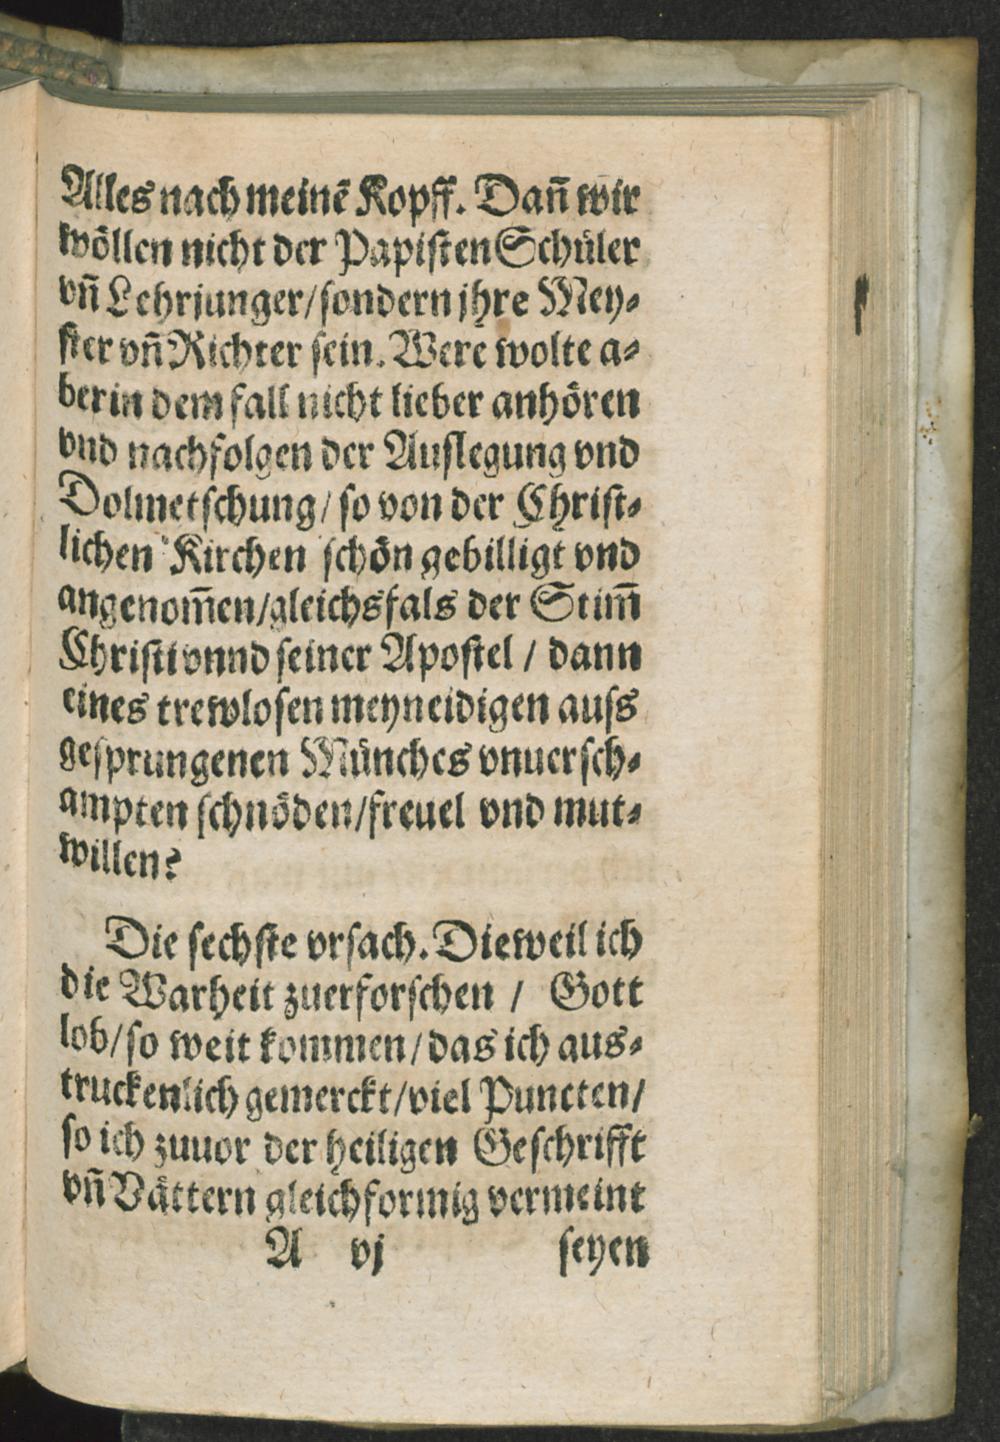 Alles nach meinē Kopff. Dañ wir
wöllen nicht der Papisten Schüler
vñ Lehrjunger/sondern jhre Mey-
ster vñ Richter sein. Were wolte a-
ber in dem fall nicht lieber anhören
vnd nachfolgen der Auslegung vnd
Dolmetschung/ so von der Christ-
lichen Kirchen schön gebilligt vnd
angenom̄en/gleichsfals der Stim̄
Christi vnnd seiner Apostel / dann
eines trewlosen meyneidigen auss
gesprungenen Münches vnuersch-
ampten schnöden/freuel vnd mut-
willen?
Die sechste vrsach. Dieweil ich
die Warheit zuerforschen / Gott
lob/so weit kommen/das ich aus-
truckenlich gemerckt/viel Puncten/
so ich zuuor der heiligen Geschrifft
vñ Vättern gleichformig vermeint
A vj seyen